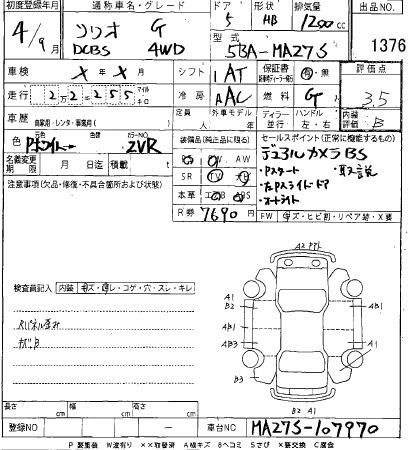 初度登録年月 通称車名・グレード ドア 形状 排気量 出品NO.
4/9 ソリオ G 5 HB 1200cc
DCBS 4WD 型式 5BA-MA27S 1376
車検 X年X月 シフト 1AT 保証書 有・無 評価点
走行 22255 マイル キロ 冷房 AAC 燃料 G 3.5
車歴 自家用・レンタ・事業用( ) 定員 人 外車モデル 年 ディーラー 並行 ハンドル 左・右 内装評価 B
元色 色 カラーNO ZVR
装備品(純正品に限る) セールスポイント(正常に機能するもの)
名義変更期限 月 日迄 積載 t
PS PW AW
デュアルカメラBS
注意事項(欠品・修復・不具合箇所および状態)
SR TV ナビ
・Pスタート ・取説
・左Pスライドドア
本革 エアB ABS
・オートライト
R券 7690 FW キズ・ヒビ割・リペア跡・X要
検査員記入 内装 キズ・汚レ・コゲ・穴・スレ・キレ
A2
A1 B2
AB1 AB1
AB3 AB2
B3 A1
B2 A1
長さ cm 幅 cm 高さ cm
登録NO ー 車台NO MA27S-107970
P 要塗装 W 波有り ××取替済 A 線キズ B ヘコミ S さび X 要交換 C 腐食